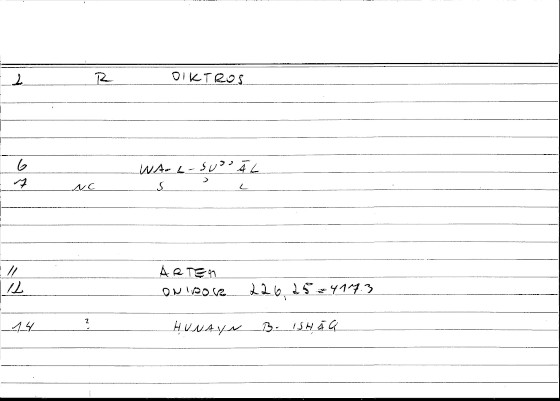 1 R DIKTROS
6 WA-L-SUʾʾĀL
7 NC S ʾ L
11 ARTEM
12 ONIROCR 226,25=417.3
14 ? HUNAYN B. ISHĀQ